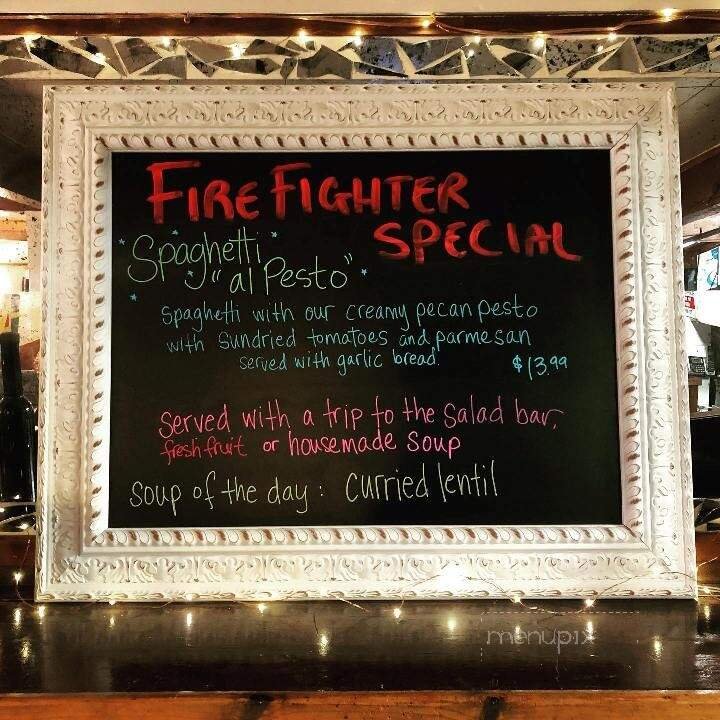 FIREFIGHTER
SPECIAL
Spaghetti
"al Pesto"
Spaghetti with our creamy pecan pesto
with Sundried tomatoes and parmesan
served with garlic bread.
$13.99
Served with a trip to the salad bar,
fresh fruit or housemade soup
Soup of the day: Curried lentil
menupix